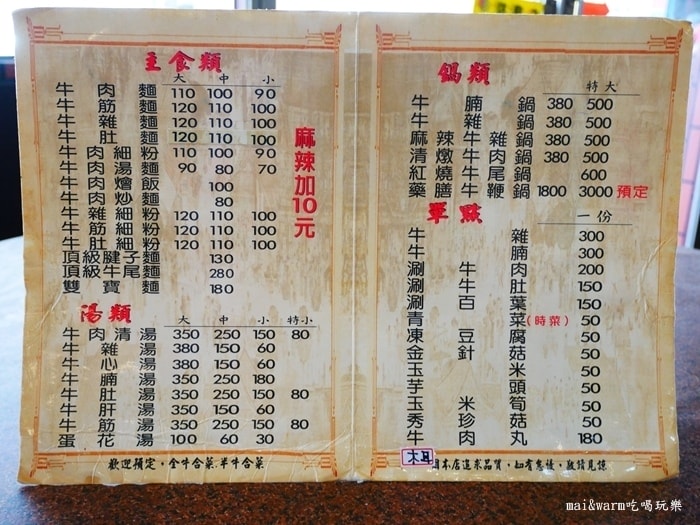 主食類
大 中 小
牛肉麵 110 100 90
牛筋麵 120 110 100
牛雜麵 120 110 100
牛肚麵 120 110 100
牛肉細粉 110 100 90
牛肉湯麵 90 80 70
牛肉燴飯 100
牛肉炒麵 80
牛雜細粉 120 110 100
牛筋細粉 120 110 100
牛肚細粉 120 110 100
頂級腱子麵 130
頂級牛尾麵 280
雙寶麵 180
麻辣加10元
湯類
大 中 小 特小
牛肉清湯 350 250 150 80
牛雜湯 380 150 60
牛心湯 380 150 60
牛腩湯 350 250 180
牛肚湯 350 250 150 80
牛肝湯 350 250 150
牛筋湯 350 250 150 80
蛋花湯 100 60 30
歡迎預定，全牛合菜.半牛合菜
鍋類
特大
牛腩鍋 380 500
牛雜鍋 380 500
麻辣牛雜鍋 380 500
清燉牛肉鍋 380 500
紅燒牛尾鍋 600
藥膳牛鞭鍋 1800 3000 預定
單點
一份
牛雜 300
牛腩 300
涮牛肉 200
涮牛肚 150
涮百葉 150
青菜(時菜) 50
凍豆腐 50
金針菇 50
玉米 50
芋頭 50
玉米筍 50
秀珍菇 50
牛肉丸 180
木耳
本店追求品質，如有怠慢，敬請見諒
mai&warm吃喝玩樂